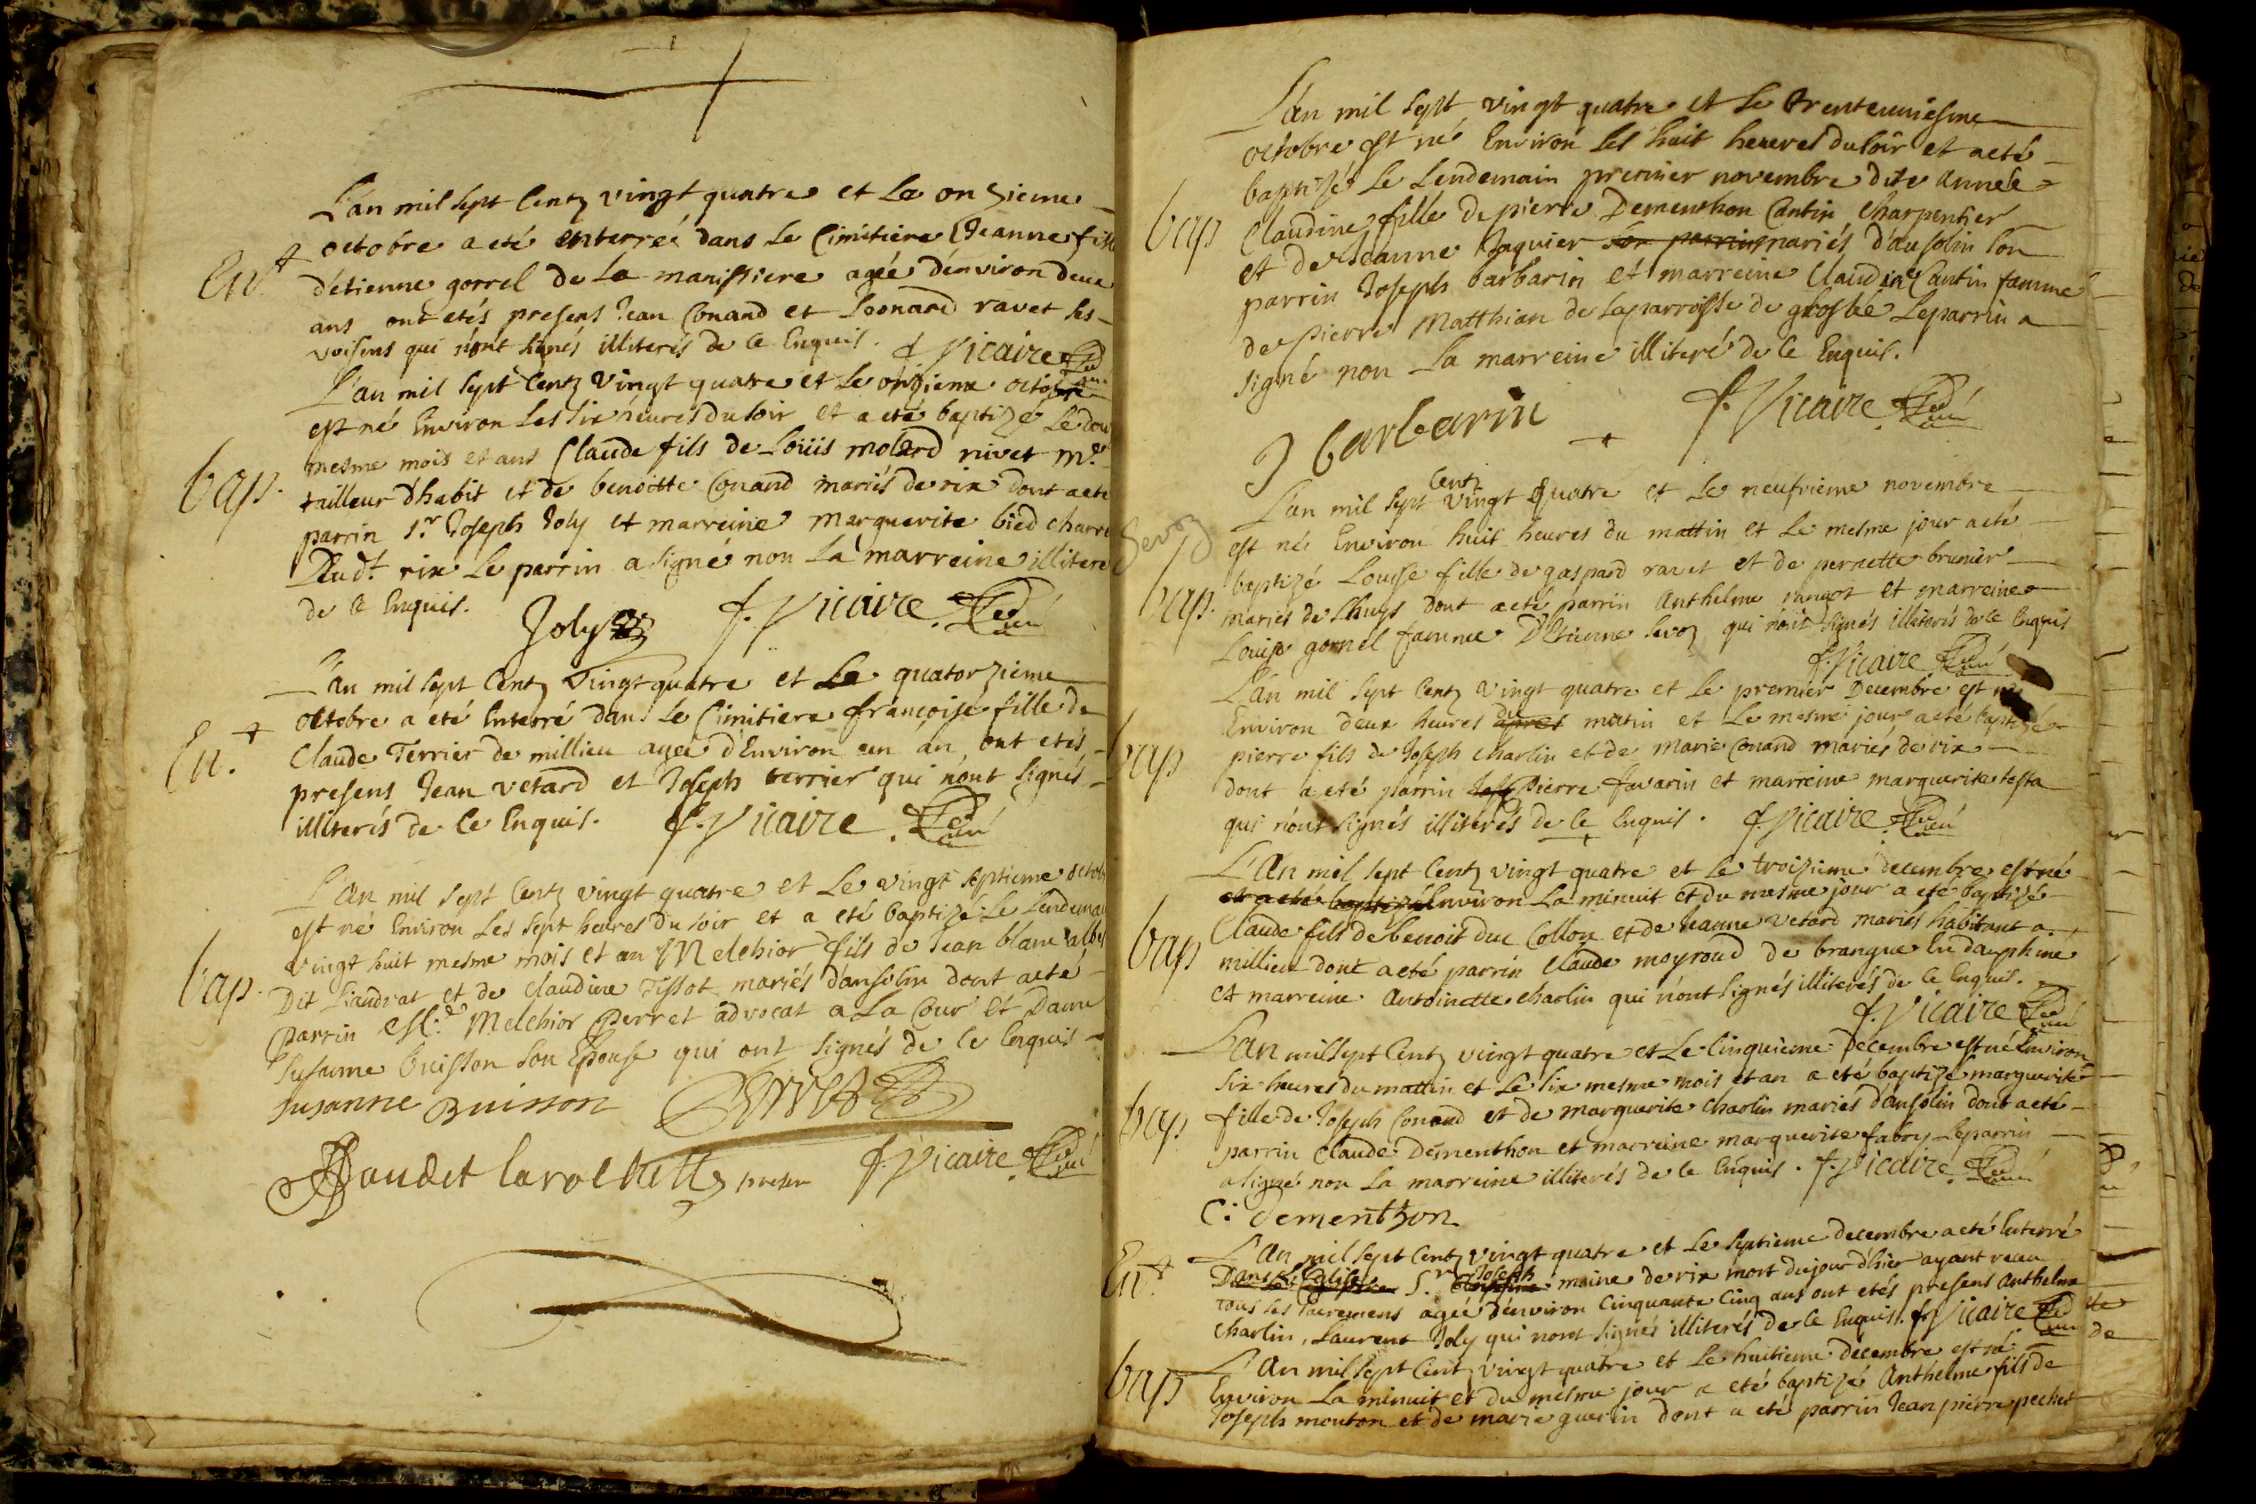 L'an mil sept Centz vingt quatre et Le onzieme
octobre a eté enterrée dans Le Cimitiere Jeanne fille
Ent
d'etienne gorrel de La manissiere agée d'environ deux
ans ont etés presens Jean Conand et Leonard ravet ses
voisins qui n'ont signés illiterés de Ce Enquis. f. Vicaire
L'an mil sept Centz Vingt quatre et Le onzieme octobre
est né Environ Les six heures du soir et a eté baptizé Le
mesme mois et ans Claude fils de Loüis molard nivet mre
bap.
tailleur d'habit et de benoitte Conand mariés de rix dont a eté
parrin sr. Joseph Joly et marreine Marguerite bied charre
Dudt. rix Le parrin a signé non La marreine illitere
de Ce Enquis.
Joly f. Vicaire
L'an mil sept Centz Vingt quatre et Le quatorzieme
octobre a eté Enterré dans Le Cimitiere françoise fille de
En.
Claude Terrier de millieu agée d'Environ un an, ont etés
presens Jean vetard et Joseph terrier qui n'ont signés
illiterés de Ce Enquis. f. Vicaire
L'an mil sept Centz vingt quatre et Le vingt septieme octob
est né Environ Les sept heures du soir et a eté baptizé Le Lendemai
vingt huit mesme mois et an Melchior fils de Jean blanc
bap.
Dit et de Claudine Tissot mariés d'ansolin dont a eté
parrin Melchior Perret advocat a La Cour Et Dame
Susanne Buisson son Epouse qui ont signés de Ce Enquis
susanne Buisson Perret
Baudet larochette f. Vicaire
L'an mil sept vingt quatre et Le trenteuniesme
octobre est né Environ Les huit heures du soir et a eté
baptizé Le Lendemain premier novembre dite année
bap
Claudine fille de pierre Dementhon Cantin Charpentier
et de Jeanne Jaquier son parrin mariés d'ansolin son
parrin Joseph barbarin et marreine Claudine Cantin famme
de pierre Matthian de La parroisse de groslée Le parrin a
signé non La marreine illiteré de Ce Enquis.
J barbarin f. Vicaire
Centz
L'an mil sept vingt quatre et Le neufvieme novembre
Sevoz
est né Environ huit heures du mattin et Le mesme jour a eté
bap.
baptizé Louise fille de gaspard ravet et de pernette brunier
mariés de Lhuys dont a eté parrin Anthelme et marreine
Louise gornel famme D'Etienne Sevoz qui n'ont signés illiterés de Ce Enquis
f. Vicaire
L'an mil sept Centz vingt quatre et Le premier Decembre est né
Environ deux heures apres du matin et Le mesme jour a eté baptizé
bap
pierre fils de Joseph Charlin et de Marie Conand mariés de rix
dont a eté parrin Pierre favarin et marreine marguerite testa
qui n'ont signés illiterés de Ce Enquis. f. Vicaire
L'An mil sept Centz vingt quatre et Le troizieme decembre est né
et a eté baptizé Environ La minuit et du mesme jour a eté baptizé
bap
Claude fils de benoit duc Collon et de Jeanne vetard mariés habitant a
millieu dont a eté parrin Claude moyroud de brangue En dauphine
et marreine Antoinette Charlin qui n'ont signés illiterés de Ce Enquis.
f. Vicaire
L'an mil sept Centz vingt quatre et Le Cinquieme Decembre est né Environ
six heures du mattin et Le six mesme mois et an a eté baptizé marguerite
bap
fille de Joseph Conand et de marguerite Charlin mariés d'ansolin dont a eté
parrin Claude Dementhon et marreine marguerite fabry Le parrin
a signé non La marreine illiterés de Ce Enquis. f. Vicaire
C: dementhon
L'An mil sept Centz vingt quatre et Le septieme decembre a eté Enterré
Ent
Dans L'Eglise Sr. Joseph moine de rix mort du jour d'hier ayant receu
tous Les sacremens agée d'environ Cinquante Cinq ans ont etés presens Anthelme
Charlin, Laurent Joly qui n'ont signés illiterés de Ce Enquis. f. Vicaire
L'An mil sept Centz vingt quatre et Le huitieme decembre est né
bap
Environ La minuit et du mesme jour a eté baptizé Anthelme fils de
Joseph mouton et de marie guerin dont a eté parrin Jean pierre pechet